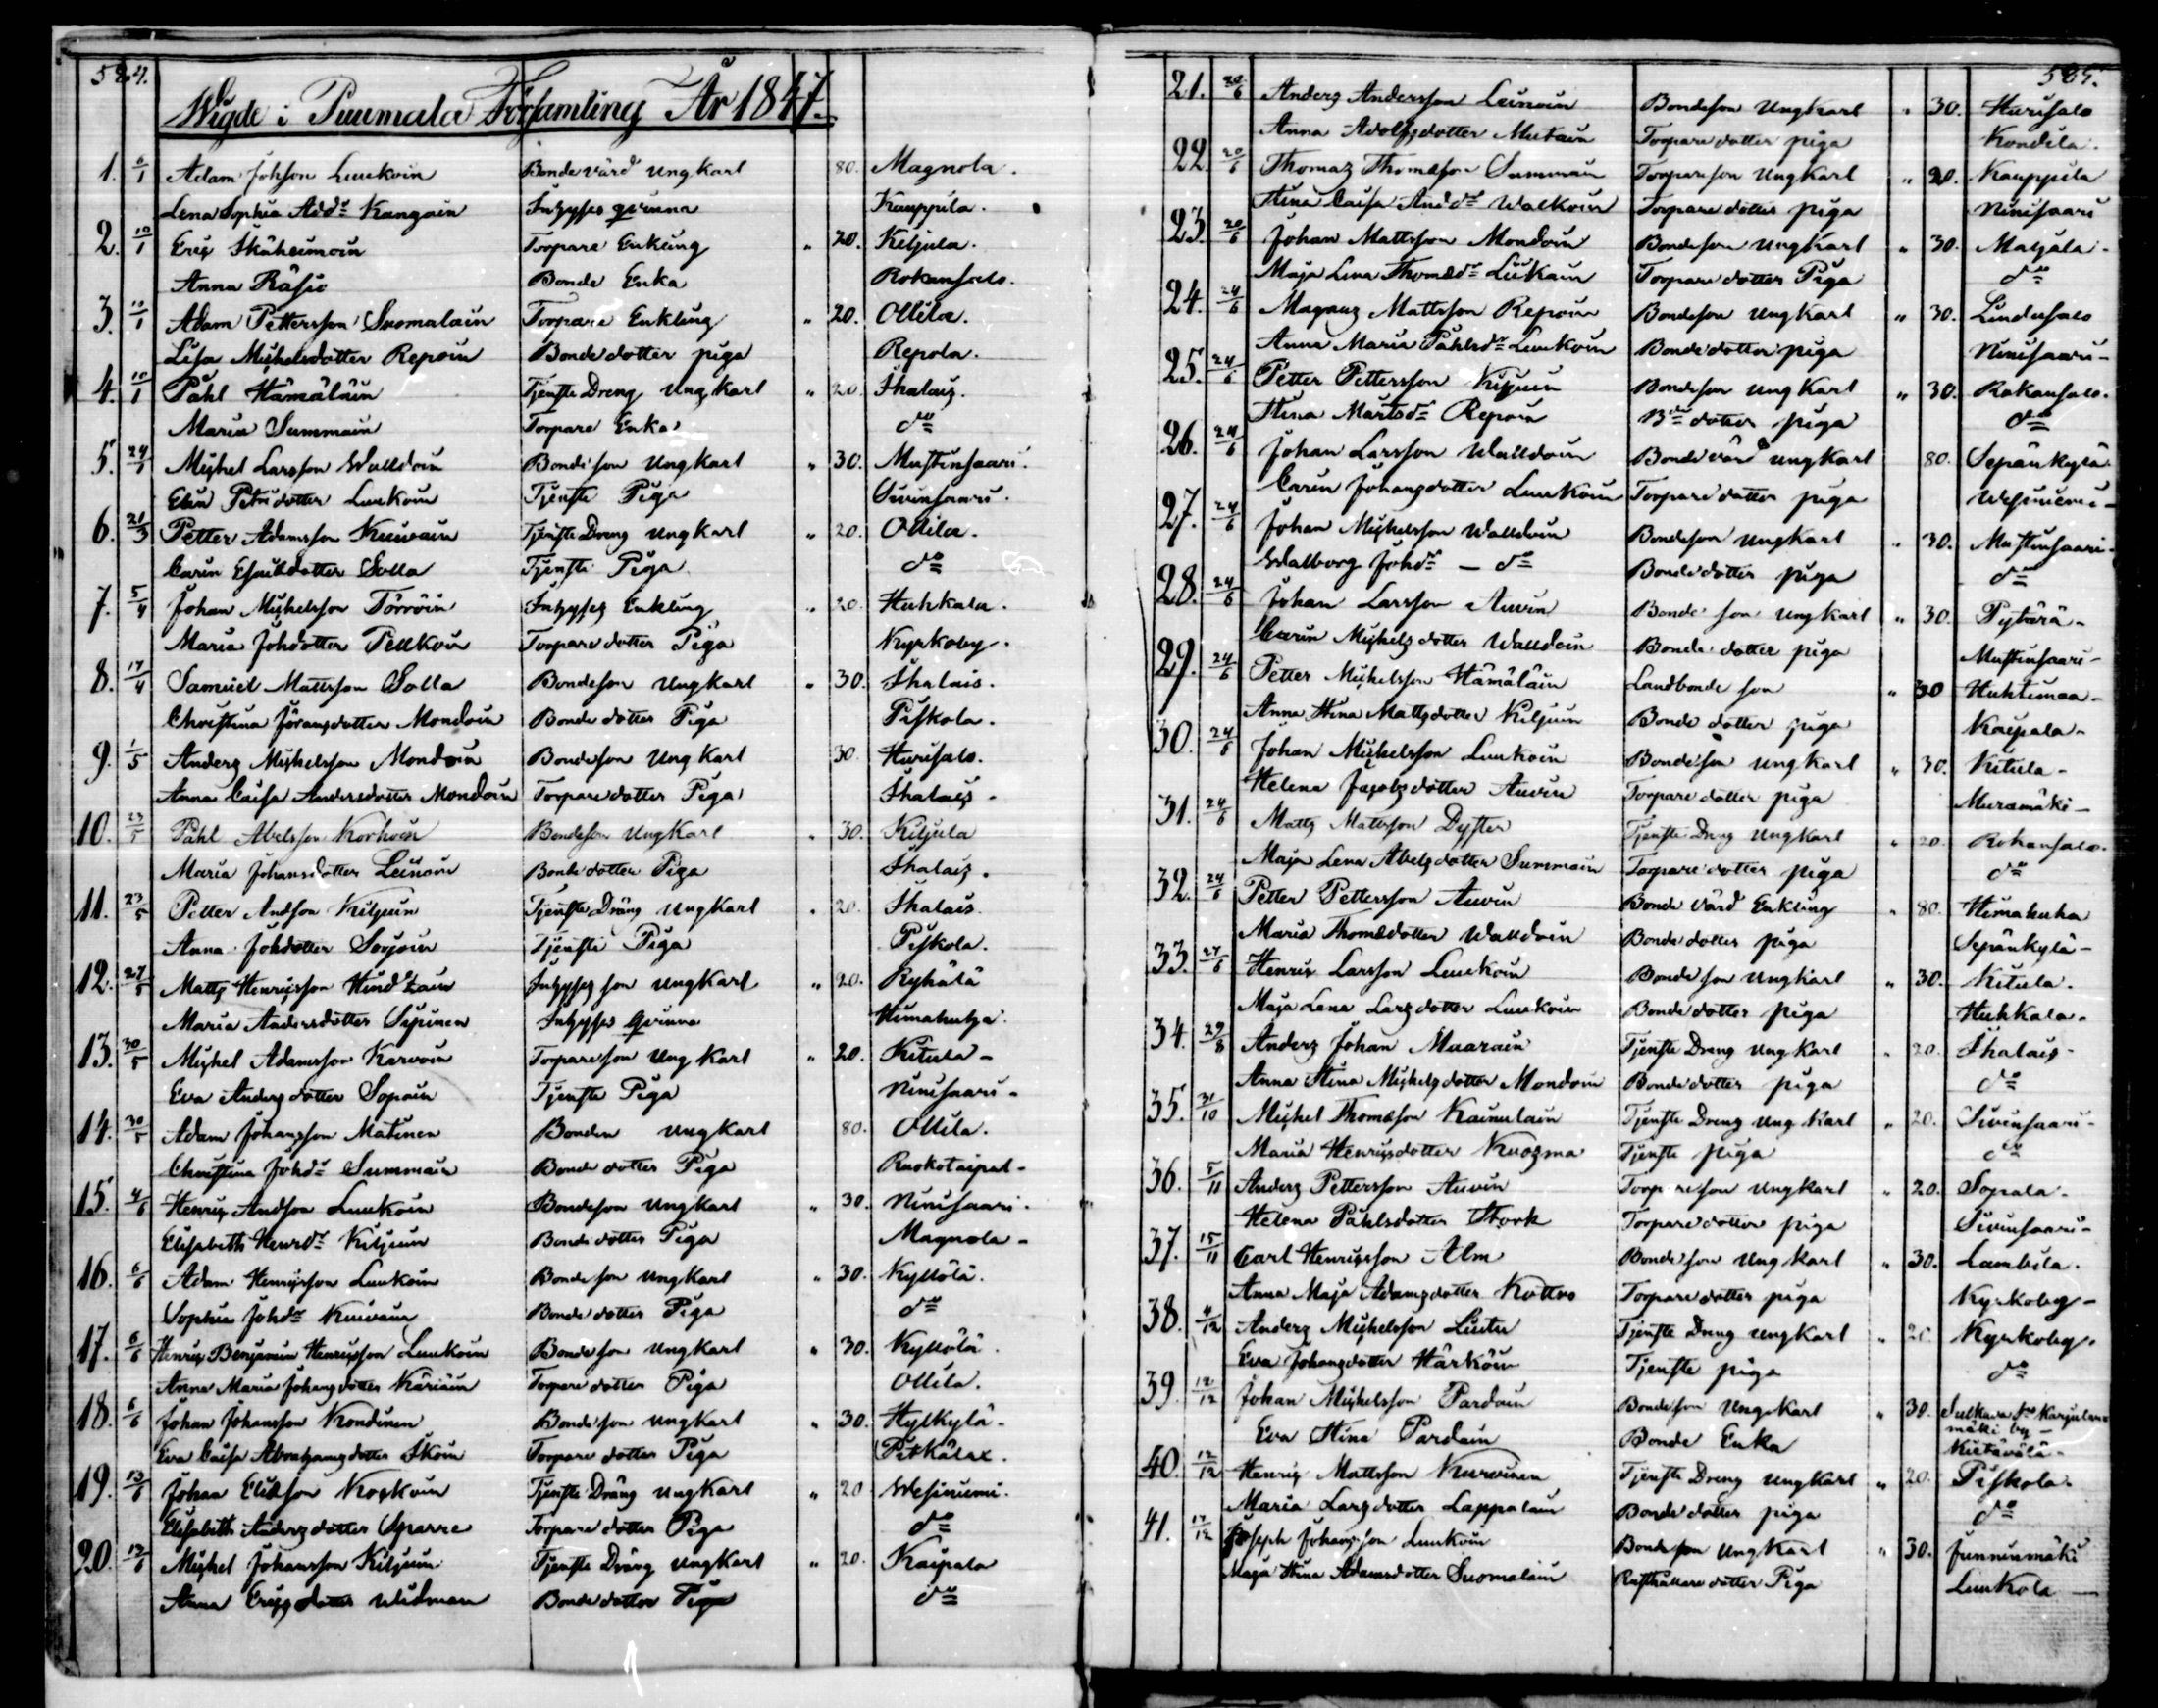 584.
Wigde i Puumala Församling År 1847.
1. 6/1 Adam Johson Luukoin Bondevärd Ungkarl 80. Magnola.
Lena Sophia Add:r Kangain Inhyses qvinna Kauppila.
2. 10/1 Eric Ikäheimoin Torpare Enkling " 20. Kiljula.
Anna Räsic Bonde Enka Rokansalo.
3. 10/1 Adam Pettersson Suomalain Torpare Enkling " 20. Ollila.
Lisa Michelsdotter Repoin Bondedotter piga Repola.
4. 10/1 Påhl Hämäläin Tjenste Dreng Ungkarl " 20 Ihalais.
Maria Summain Torpare Enka d:o
5. 24/1 Michel Larsson Walldoin Bondeson Ungkarl " 30. Mustinsaari.
Elin Petridotter Luukoin Tjenste Piga Sivinsaari.
6. 21/3 Petter Adamsson Kuivain Tjenste Dreng Ungkarl " 20. Ollila.
Carin Esaiedotter Solla Tjenste Piga d:o
7. 5/4 Johan Michelsson Törröin Inhyses Enkling " 20. Huhkala.
Maria Johdotter Pellkoin Torpare dotter Piga Kyrkoby.
8. 17/4 Samuel Mattsson Solla Bondeson Ungkarl " 30. Ihalais.
Christina Göransdotter Mondoin Bonde dotter Piga Piskola.
9. 1/5 Anders Michelsson Mondoin Bondeson Ungkarl 30. Hurisalo.
Anna Caisa Andersdotter Mondoin Torpare dotter Piga Ihalais.
10. 23/5 Påhl Abelsson Korhoin Bondeson Ungkarl " 30. Kiljula
Maria Johansdotter Leinoin Bonde dotter Piga Ihalais.
11. 23/5 Petter Andson Kiljuin Tjenste Dräng Ungkarl " 20. Ihalais.
Anna Johdotter Sorjoin Tjenste Piga Piskola.
12. 27/5 Matts Henricsson Hindikain Inhyses son Ungkarl " 20. Ryhälä
Maria Andersdotter Sipinen Inhyses Qvinna
13. 30/5 Michel Adamsson Karvoin Torpareson Ungkarl " 20. Kitula
Eva Anders dotter Sopain Tjenste Piga Ninisaari
14. 30/5 Adam Johansson Matinen Bonden Ungkarl 80. Ollila.
Christina Johd:r Summain Bonde dotter Piga Ruokotaipal
15. 4/6 Henric Andson Luukoin Bondeson Ungkarl " 30. Ninisaari.
Elisabeth Henrd:r Kiljuin Bonde dotter Piga Magnola
16. 6/6 Adam Henricsson Luukoin Bondeson Ungkarl " 30. Kyllölä.
Sophia Johd:r Kuivain Bonde dotter Piga d:o
17. 6/6 Henric Benjamin Henricsson Luukoin Bondeson Ungkarl " 30. Kyllölä.
Anna Maria Johansdotter Käriäin Torpare dotter Piga Ollila.
18. 6/6 Johan Johansson Kondinen Bondeson Ungkarl " 30. Hylkylä
Eva Caisa Abrahamsdotter Ikoin Torpare dotter Piga Pitkälax.
19. 13/6 Johan Eliæson Koskoin Tjenste Dräng Ungkarl " 20 Wesiniemi.
Elisabeth Andersdotter Sparre Torpare dotter Piga d:o
20. 13/6 Michel Johansson Kiljuin Tjenste Dräng Ungkarl " 20. Kaipala
Anna Erics dotter Widman Bonde dotter Piga d:o
585.
21. 20/6 Anders Andersson Leinoin Bondeson Ungkarl " 30. Hurisalo
Anna Adolfsdotter Mutain Torpare dotter piga Kondila.
22. 20/6 Thomas Thomæson Summain Torpareson Ungkarl " 20. Kauppila
Stina Caisa Andd:r Walkoin Torpare dotter piga Ninisaari
23. 20/6 Johan Mattsson Mondoin Bondeson Ungkarl " 30. Maljala
Maja Lena Thomæd:r Liukain Torpare dotter Piga d:o
24. 24/6 Magnus Mattsson Repoin Bondeson Ungkarl " 30. Lindusalo
Anna Maria Påhlsd:r Luukoin Bondedotter piga Ninisaari
25. 24/6 Petter Pettersson Kiljuin Bondeson Ungkarl " 30. Rokansalo.
Stina Martisd:r Repoin B:de dotter piga d:o
26. 24/6 Johan Larsson Walldoin Bondevärd Ungkarl 80. Sepänkylä
Carin Johansdotter Luukoin Torpare dotter piga Wesiniemi
27. 24/6 Johan Michelsson Walldoin Bondeson Ungkarl " 30. Mustinsaari
Walborg Johd:r — d:o Bonde dotter piga d:o
28. 24/6 Johan Larsson Auvin Bonde son Ungkarl " 30. Pistärä
Carin Michelsdotter Walldoin Bonde dotter piga Mustinsaari
29. 24/6 Petter Michelsson Hämäläin Landbonde son " 30 Huhtimaa
Anna Stina Mattsdotter Kiljuin Bonde dotter piga Kaipala
30. 24/6 Johan Michelsson Luukoin Bondeson Ungkarl " 30. Kitula
Helena Jacobsdotter Auvin Torpare dotter piga Muramäki
31. 24/6 Matts Mattsson Dyster Tjenste Dreng Ungkarl " 20. Rokansalo.
Maja Lena Abelsdotter Summain Torpare dotter piga d:o
32. 24/6 Petter Pettersson Auvin Bonde värd Enkling " 80. Himahuha
Maria Thomædotter Walldoin Bonde dotter piga Sepänkylä
33. 27/6 Henric Larsson Luukoin Bonde son Ungkarl " 30. Kitula.
Maja Lena Larsdotter Luukoin Bonde dotter piga Huhkala.
34. 29/8 Anders Johan Muarain Tjenste Dreng Ungkarl " 20. Ihalais
Anna Stina Michelsdotter Mondoin Bonde dotter piga d:o
35. 31/10 Michel Thomæson Kainulain Tjenste Dreng Ungkarl " 20. Sivinsaari
Maria Henricsdotter Kuosma Tjenste piga d:o
36. 5/11 Anders Pettersson Auvin Torpareson Ungkarl " 20. Sopala
Helena Påhlsdotter Stork Torpare dotter piga Sivinsaari
37. 15/11 Carl Henricsson Alm Bonde son Ungkarl " 30. Lambila.
Anna Maja Adamsdotter Kottro Torpare dotter piga Kyrkoby
38. 4/12 Anders Michelsson Liutu Tjenste Dreng Ungkarl " 20 Kyrkoby.
Eva Johansdotter Härköin Tjenste piga d:o
39. 12/12 Johan Michelsson Pardain Bondeson Ungkarl " 30. Sulkava S:n Karjulan
mäki by
Eva Stina Pardain Bonde Enka Kietävälä
40. 12/12 Henric Mattsson Kurvinen Tjenste Dreng Ungkarl " 20. Piskola
Maria Larsdotter Lappalain Bonde dotter piga d:o
41. 17/12 Joseph Johansson Luukoin Bondeson Ungkarl " 30. Junninmäki
Maja Stina Adamsdotter Suomalain Rusthållare dotter Piga Luukola